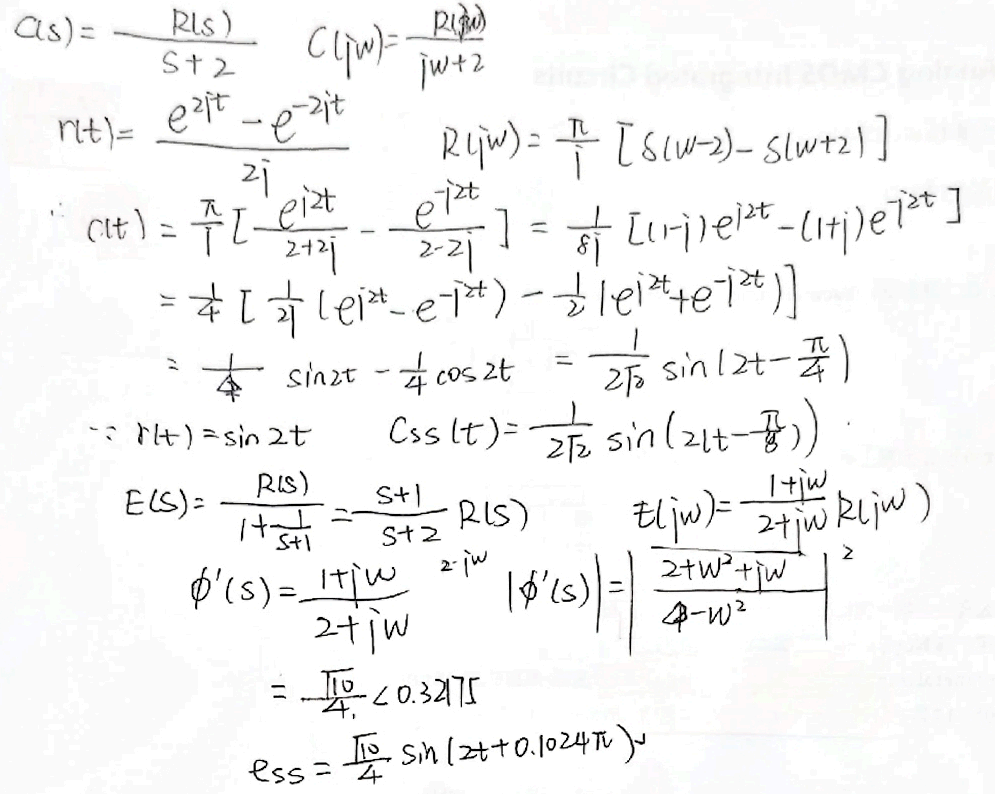 C(s) = R(s) / (s+2)   C(jw) = R(jw) / (jw+2)
r(t) = (e^{2jt} - e^{-2jt}) / 2j   R(jw) = π/j [δ(w-2) - δ(w+2)]
∴ c(t) = π/j [e^{j2t} / (2+2j) - e^{-j2t} / (2-2j)] = 1/8j [(1-j)e^{j2t} - (1+j)e^{-j2t}]
= 1/4 [1/2j (e^{j2t} - e^{-j2t}) - 1/2 (e^{j2t} + e^{-j2t})]
= 1/4 sin2t - 1/4 cos2t = 1/(2√2) sin(2t - π/4)
∵ r(t) = sin2t   Css(t) = 1/(2√2) sin(2(t - π/8))
E(s) = R(s) / (1 + 1/(s+1)) = (s+1)/(s+2) R(s)   E(jw) = (1+jw)/(2+jw) R(jw)
φ'(s) = (1+jw)/(2+jw)   2-jw   |φ'(s)| = |(2+w²+jw) / (4-w²)|²
= √10/4 ∠0.32175
ess = √10/4 sin(2t + 0.1024π)